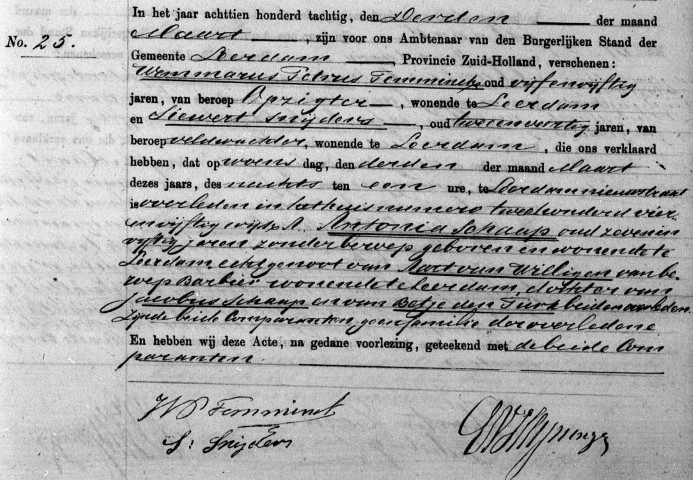 In het jaar achttien honderd tachtig, den Derden der maand
No. 25.
Maart, zijn voor ons Ambtenaar van den Burgerlijken Stand der
Gemeente Leerdam, Provincie Zuid-Holland, verschenen:
Petrus Temminck oud vijfenvijftig
jaren, van beroep Opzigter, wonende te Leerdam
en Siewert Snijders, oud tweeenveertig jaren, van
beroep veldwachter, wonende te Leerdam, die ons verklaard
hebben, dat op woens dag, den derden der maand Maart
dezes jaars, des nachts ten een ure, te Leerdam nieuwstraat
is overleden in het huis numero tweehonderd vier
en vijftig wijk A. Antonia Schaap oud zevenen
vijftig jaren zonder beroep geboren en wonende te
Leerdam, echtgenoot van Aart van Willigen van be
roep Barbier wonende te Leerdam, dochter van
Jacobus Schaap en van Betje den Turk beiden overleden
Zijnde beide Comparanten geen familie der overledene
En hebben wij deze Acte, na gedane voorlezing, geteekend met de beide Com
paranten.
WP Temminck
S: Snijders